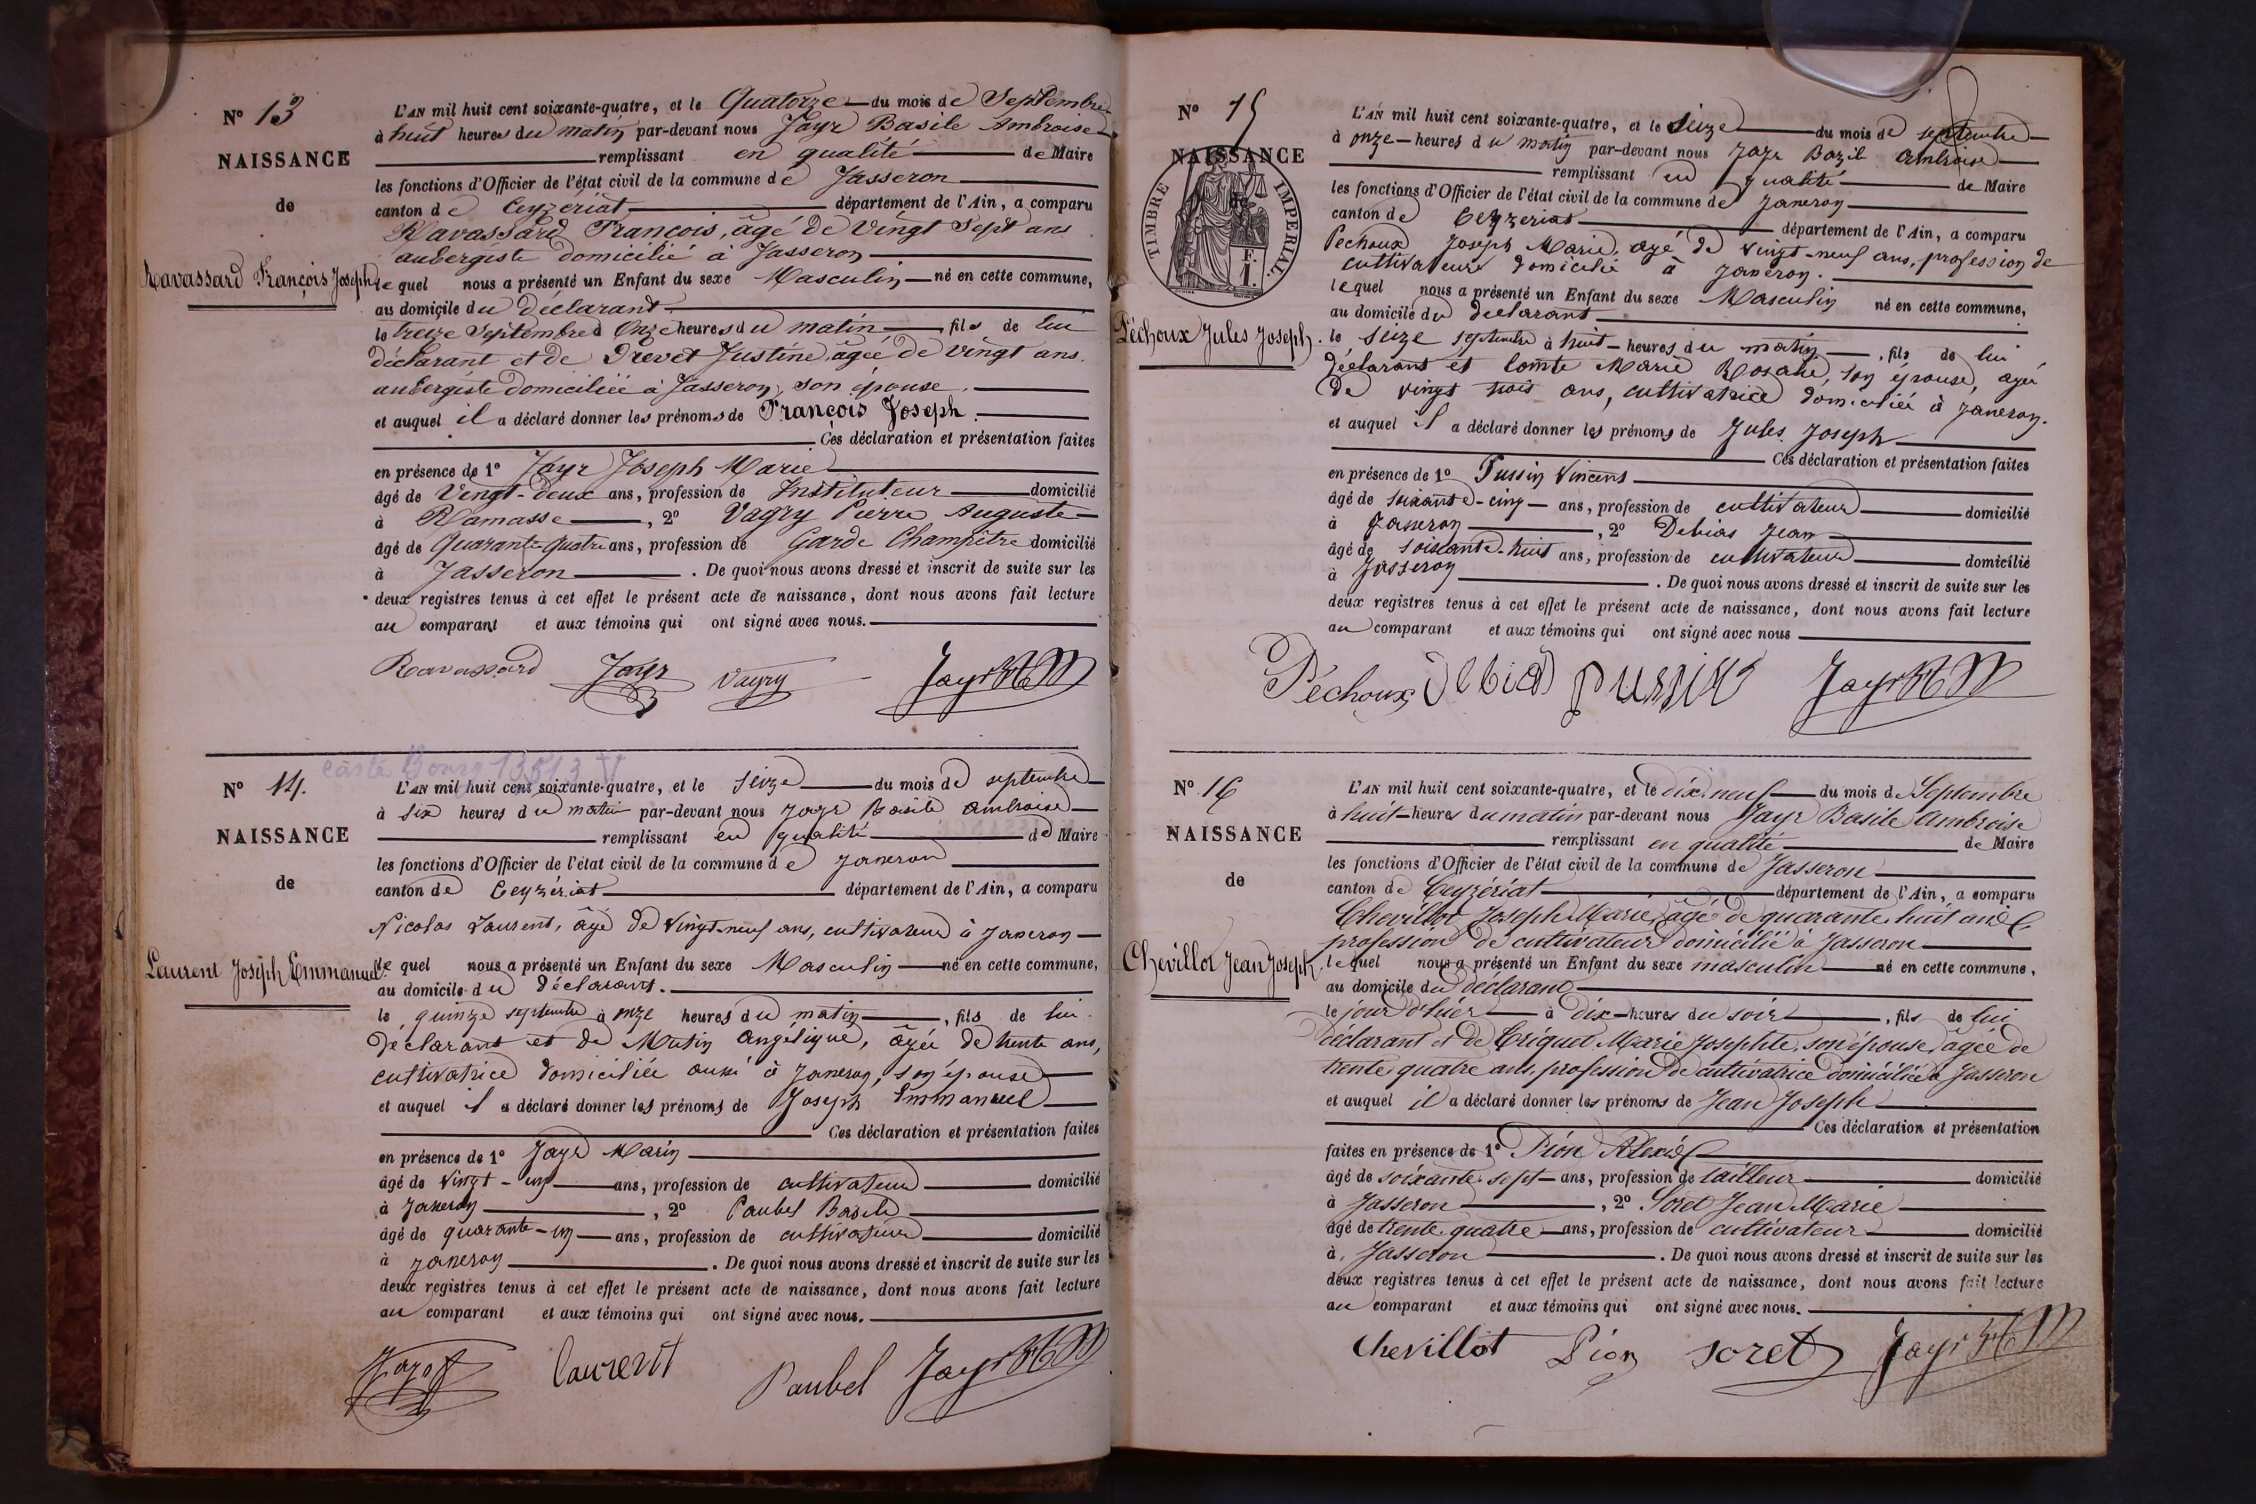 N° 13
NAISSANCE
de
Ravassard François Joseph
L'AN mil huit cent soixante-quatre, et le Quatorze du mois de Septembre
à huit heures du matin par-devant nous Jayr Basile Ambroise
remplissant en qualité de Maire
les fonctions d'Officier de l'état civil de la commune de Jasseron
canton de Ceyzériat département de l'Ain, a comparu
Ravassard François, âgé de Vingt Sept ans
aubergiste domicilié à Jasseron
lequel nous a présenté un Enfant du sexe Masculin né en cette commune,
au domicile du déclarant
le treize Septembre à Onze heures du matin, fils de lui
déclarant et de Drevet Justine âgée de vingt ans
aubergiste domiciliée à Jasseron, son épouse.
et auquel il a déclaré donner les prénoms de François Joseph.
Ces déclaration et présentation faites
en présence de 1° Jayr Joseph Marie
âgé de Vingt-deux ans, profession de Instituteur domicilié
à Ramasse, 2° Vagry Pierre Auguste
âgé de Quarante quatre ans, profession de Garde Champêtre domicilié
à Jasseron. De quoi nous avons dressé et inscrit de suite sur les
deux registres tenus à cet effet le présent acte de naissance, dont nous avons fait lecture
au comparant et aux témoins qui ont signé avec nous.
Ravassard Jayr Vagry Jayr
carte Bourg 13513 V
N° 14.
NAISSANCE
de
Laurent Joseph Emmanuel.
L'AN mil huit cent soixante-quatre, et le seize du mois de septembre
à six heures du matin par-devant nous Jayr Basile Ambroise
remplissant en qualité de Maire
les fonctions d'Officier de l'état civil de la commune de Jasseron
canton de Ceyzériat département de l'Ain, a comparu
Nicolas Laurent, âgé de vingt-neuf ans, cultivateur à Jasseron
lequel nous a présenté un Enfant du sexe Masculin né en cette commune,
au domicile du déclarant.
le quinze septembre à onze heures du matin, fils de lui
déclarant et de Mutin Angélique, âgée de trente ans,
cultivatrice domiciliée aussi à Jasseron, son épouse
et auquel il a déclaré donner les prénoms de Joseph Emmanuel
Ces déclaration et présentation faites
en présence de 1° Jayr Marin
âgé de vingt-un ans, profession de cultivateur domicilié
à Jasseron, 2° Paubel Basile
âgé de quarante-un ans, profession de cultivateur domicilié
à Jasseron. De quoi nous avons dressé et inscrit de suite sur les
deux registres tenus à cet effet le présent acte de naissance, dont nous avons fait lecture
au comparant et aux témoins qui ont signé avec nous.
Jayr Laurent Paubel Jayr
N° 15
NAISSANCE
de
TIMBRE IMPERIAL.
F.
1.
Péchoux Jules Joseph.
L'AN mil huit cent soixante-quatre, et le seize du mois de septembre
à onze heures du matin par-devant nous Jayr Bazile Ambroise
remplissant en qualité de Maire
les fonctions d'Officier de l'état civil de la commune de Jasseron
canton de Ceyzeriat département de l'Ain, a comparu
Pechoux Joseph Marie, agé de vingt-neuf ans, profession de
cultivateur domicilié à Jasseron.
lequel nous a présenté un Enfant du sexe Masculin né en cette commune,
au domicile du déclarant
le seize septembre à huit heures du matin, fils de lui
déclarant et Comte Marie Rosalie, son épouse, agée
de vingt trois ans, cultivatrice domiciliée à Jasseron.
et auquel il a déclaré donner les prénoms de Jules Joseph
Ces déclaration et présentation faites
en présence de 1° Pussin Vincent
âgé de soixante-cinq ans, profession de cultivateur domicilié
à Jasseron, 2° Debias Jean
âgé de soixante-huit ans, profession de cultivateur domicilié
à Jasseron. De quoi nous avons dressé et inscrit de suite sur les
deux registres tenus à cet effet le présent acte de naissance, dont nous avons fait lecture
au comparant et aux témoins qui ont signé avec nous
Péchoux Debias pussin Jayr
N° 16
NAISSANCE
de
Chevillot Jean Joseph.
L'AN mil huit cent soixante-quatre, et le dix neuf du mois de Septembre
à huit heures du matin par-devant nous Jayr Basile Ambroise
remplissant en qualité de Maire
les fonctions d'Officier de l'état civil de la commune de Jasseron
canton de Ceyzériat département de l'Ain, a comparu
Chevillot Joseph Marie, âgé de quarante huit ans
profession de cultivateur domicilié à Jasseron
lequel nous a présenté un Enfant du sexe masculin né en cette commune,
au domicile du déclarant
le jour d'hier à dix heures du soir, fils de lui
déclarant et de Criquet Marie Josephte, son épouse, âgée de
trente quatre ans, profession de cultivatrice domiciliée à Jasseron
et auquel il a déclaré donner les prénoms de Jean Joseph
Ces déclaration et présentation
faites en présence de 1° Pion Alexis
âgé de soixante sept ans, profession de tailleur domicilié
à Jasseron, 2° Soret Jean Marie
âgé de trente quatre ans, profession de cultivateur domicilié
à Jasseron. De quoi nous avons dressé et inscrit de suite sur les
deux registres tenus à cet effet le présent acte de naissance, dont nous avons fait lecture
au comparant et aux témoins qui ont signé avec nous.
Chevillot Pion Soret Jayr